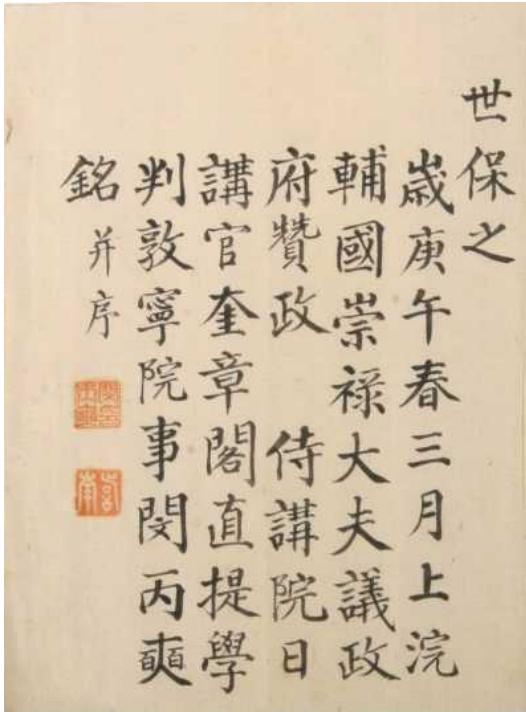 世保之
歲庚午春三月上浣
輔國崇禄大夫議政
府贊政 侍講院日
講官奎章閣直提學
判敦寧院事閔丙奭
銘 并序